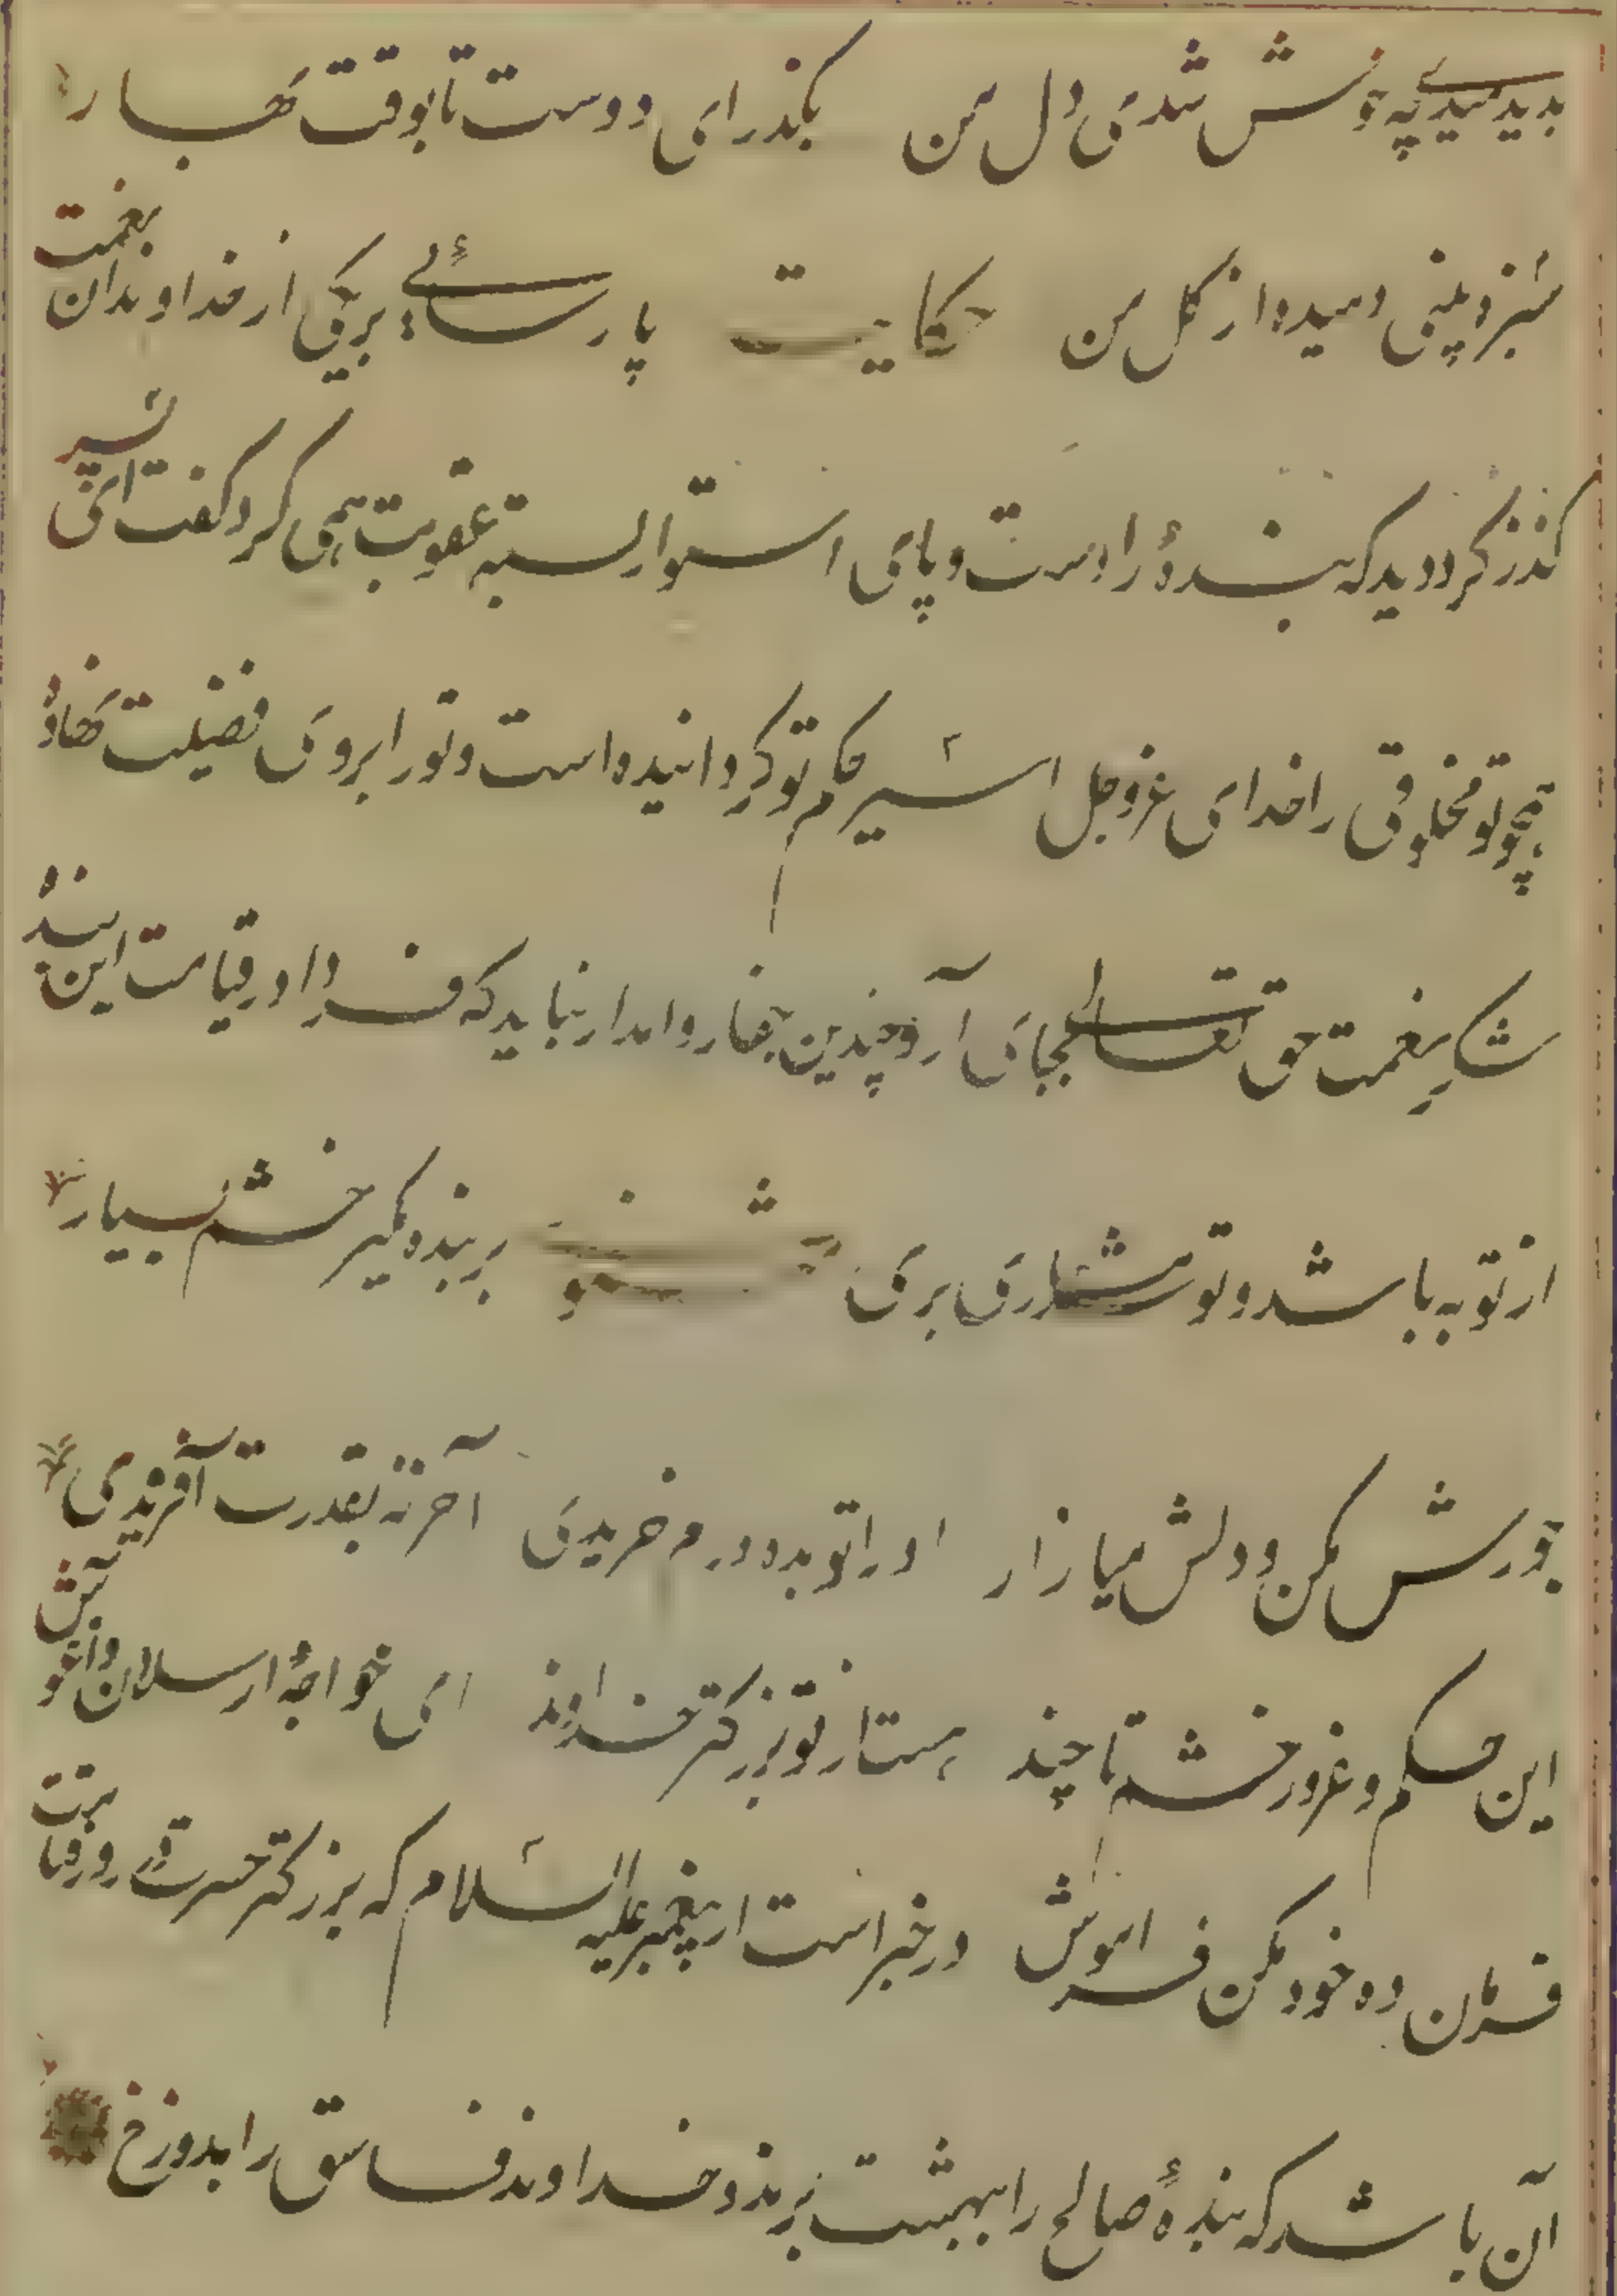 بدیدمیدی چه خوش شدی دل من بگذر ای دوست تا بوقت بهار
سبزه بینی دمیده از گل من حکایت پارسائی بر یکی از خداوندان نعمت
گذر کرد دید که بندهٔ را دست و پای استوار بسته عقوبت همی کرد گفت ای پسر
همچو تو مخلوقی را خدای عز و جل اسیر حکم تو گردانیده است و تو را بر وی فضیلت نهاده
شکر نعمت حق تعالی بجای آر و چندین جفا روا مدار نباید که فردا در قیامت این بنده
از تو به باشد و تو شرمساری بری مثنوی بر بنده مگیر خشم بسیار
جورش مکن و دلش میازار او را تو بده درم خریدی آخر نه بقدرت آفریدی
این حکم و غرور خشم تا چند هست از تو بزرگتر خداوند ای خواجهٔ ارسلان و آغوش
فرمان ده خود مکن فراموش در خبر است از پیغمبر علیه السلام که بزرگتر حسرت در روز قیامت
آن باشد که بندهٔ صالح را ببهشت برند و خداوند فاسق را بدوزخ